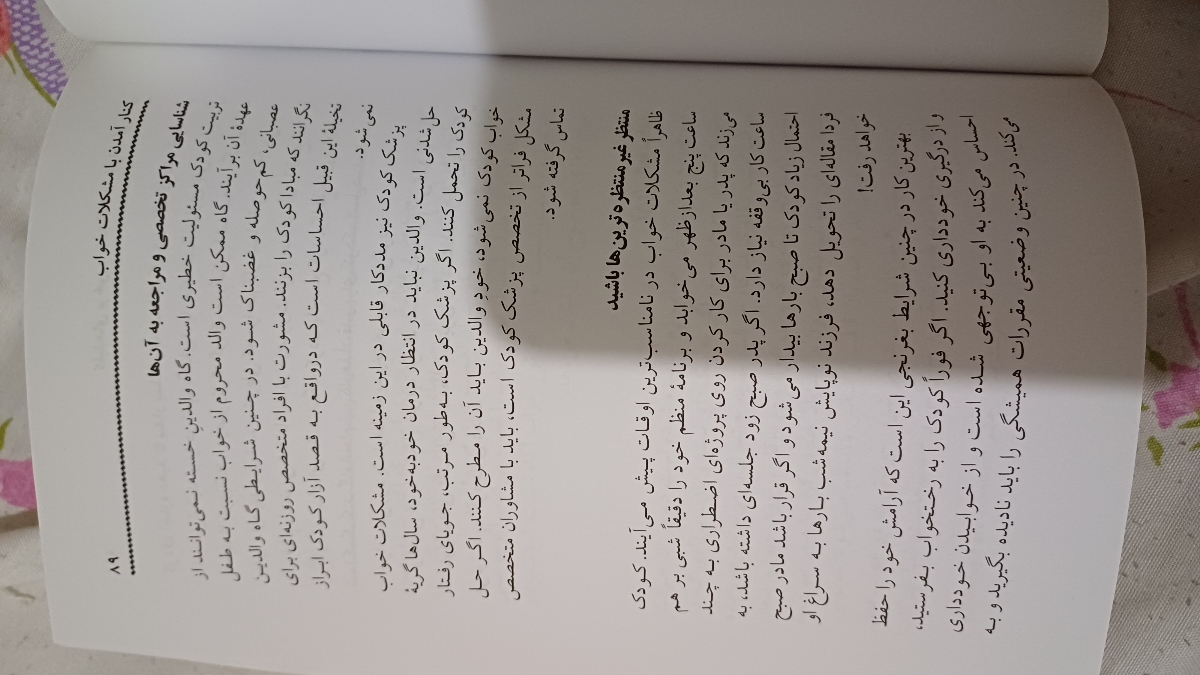 کنار آمدن با مشکلات خواب
۸۹
شناسایی مراکز تخصصی و مراجعه به آن‌ها
تربیت کودک مسئولیت خطیری است. گاه والدینِ خسته نمی‌توانند از
عهدهٔ آن برآیند. گاه ممکن است والد محروم از خواب نسبت به طفل
عصبانی، کم‌حوصله و غضبناک شود. در چنین شرایطی گاه والدین
نگرانند که مبادا کودک را بزنند. مشورت با افراد متخصص روزنه‌ای برای
تخیلهٔ این قبیل احساسات است که درواقع به قصد آزار کودک ابراز
نمی‌شود.
پزشک کودک نیز مددکار قابلی در این زمینه است. مشکلات خواب
حل‌شدنی است. والدین نباید در انتظار درمان خودبه‌خود، سال‌ها گریهٔ
کودک را تحمل کنند. اگر پزشک کودک، به‌طور مرتب، جویای رفتار
خواب کودک نمی‌شود، خودِ والدین باید آن را مطرح کنند. اگر حل
مشکل فراتر از تخصص پزشک کودک است، باید با مشاوران متخصص
تماس گرفته شود.
منتظر غیرمنتظره‌ترین‌ها باشید
ظاهراً مشکلات خواب در نامناسب‌ترین اوقات پیش می‌آیند. کودک
ساعت پنج بعدازظهر می‌خوابد و برنامهٔ منظم خود را دقیقاً شبی بر هم
می‌زند که پدر یا مادر برای کار کردن روی پروژه‌ای اضطراری به چند
ساعت کار بی‌وقفه نیاز دارد. اگر پدر صبح زود جلسه‌ای داشته باشد، به
احتمال زیاد کودک تا صبح بارها بیدار می‌شود و اگر قرار باشد مادر صبح
فردا مقاله‌ای را تحویل دهد، فرزند نوپایش نیمه‌شب بارها به سراغ او
خواهد رفت!
بهترین کار در چنین شرایط بغرنجی این است که آرامش خود را حفظ
و از درگیری خودداری کنید. اگر فوراً کودک را به رختخواب بفرستید،
احساس می‌کند به او بی‌توجهی شده است و از خوابیدن خودداری
می‌کند. در چنین وضعیتی مقررات همیشگی را باید نادیده بگیرید و به